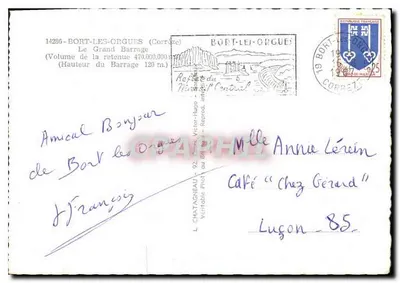 14286 - BORT-LES-ORGUES (Corrèze)
Le Grand Barrage
(Volume de la retenue 470.000.000
(Hauteur du Barrage 120 m.)
BORT-LES-ORGUES
Reflet du
Massif Central
19 BORT-LES-ORGUES
CORREZE
REPUBLIQUE FRANÇAISE
Amical Bonjour
de Bort les Orgues
J François
L. CHATAGNEAU - 92, Victor-Hugo
Véritable Photo
Mlle Annie Lérein
Café "Chez Gérard"
Luçon 85.